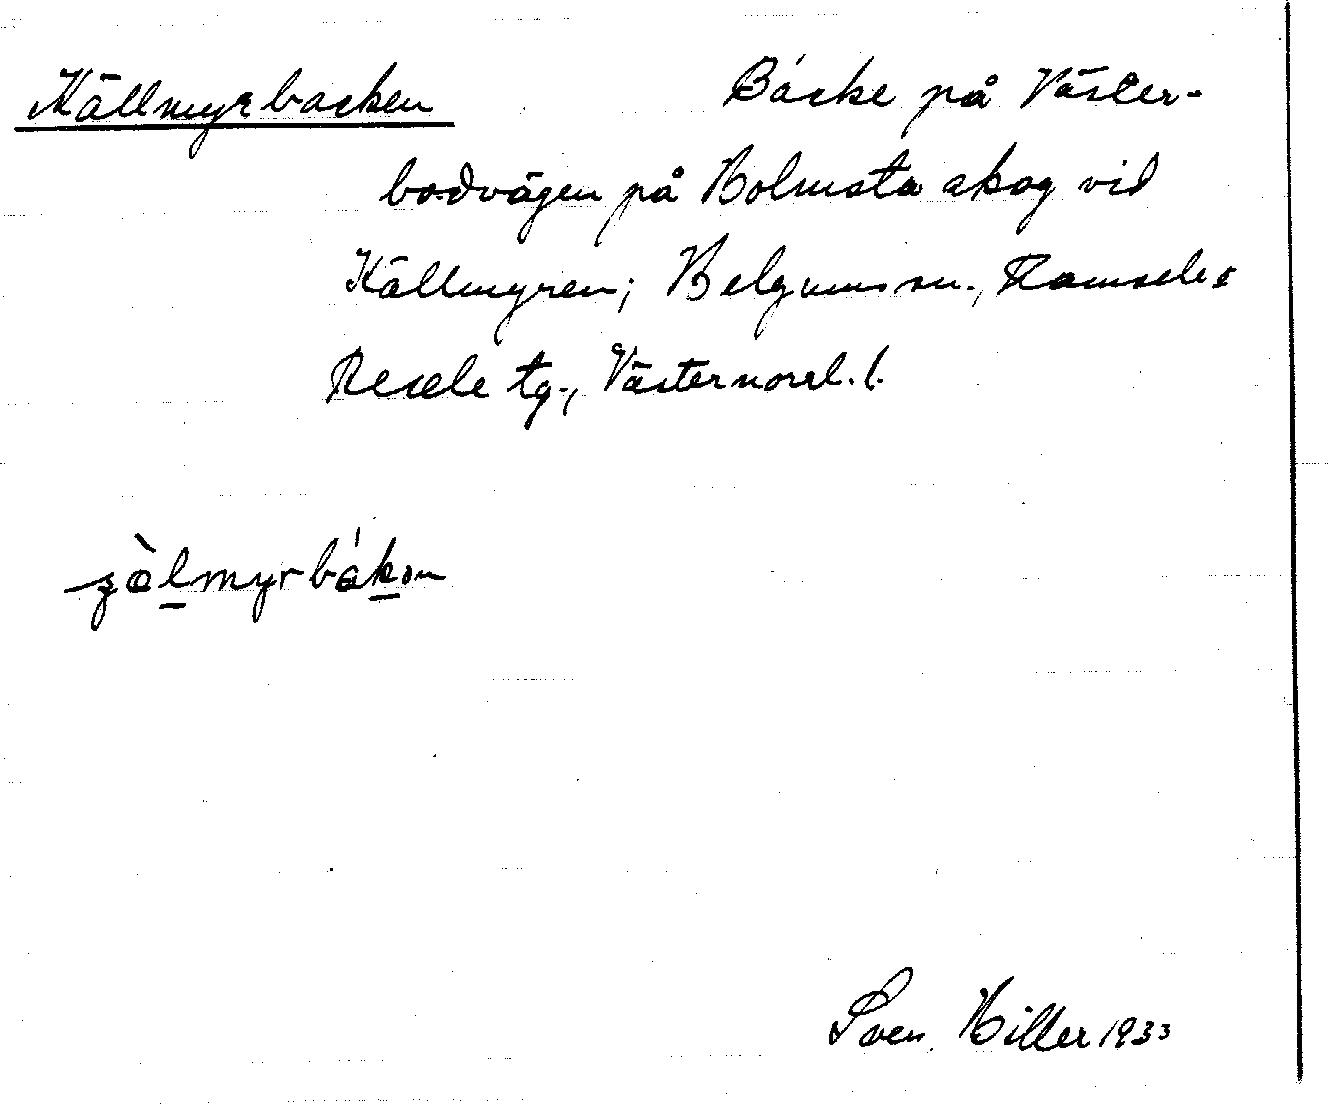 Källmyrbacken Backe på Väster-
bodvägen på Holmsta skog vid
Källmyren; Helgums sn., Ramsele o
Resele tg., Västernorrl. l.
Sven Hiller 1933